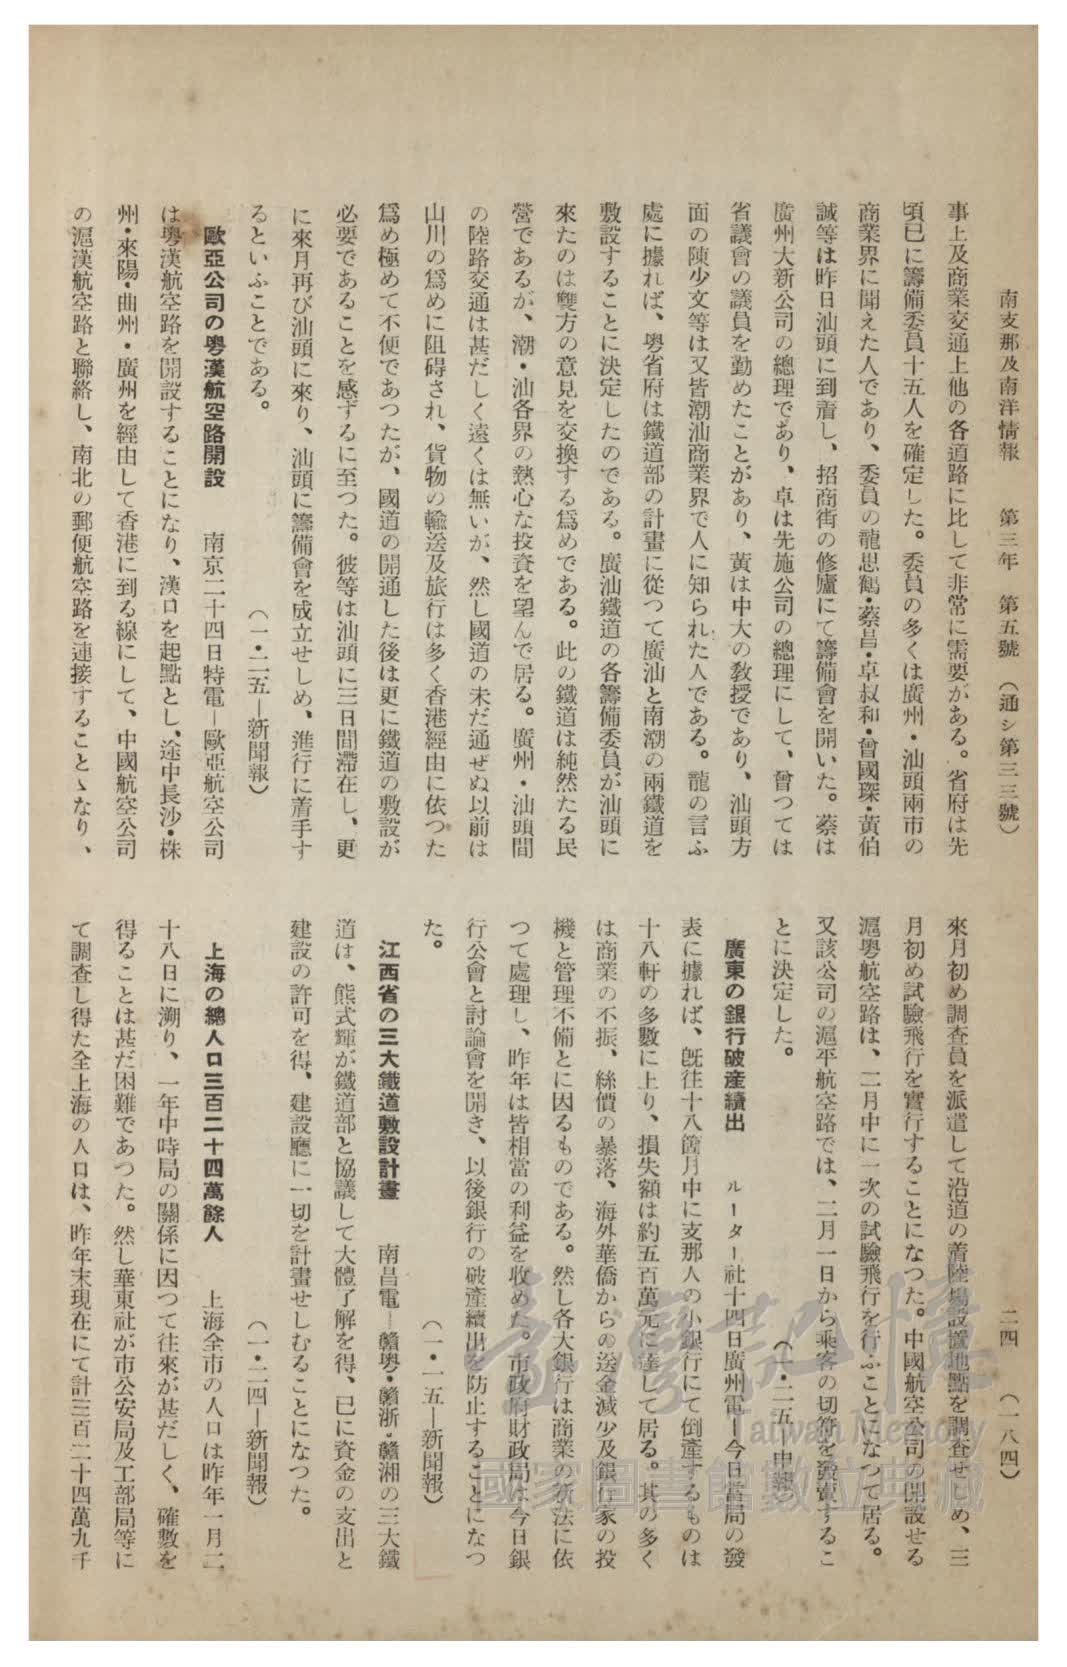 南支那及南洋情報　第三年　第五號　（通シ第三三號）　二四　（一八四）
事上及商業交通上他の各道路に比して非常に需要がある。省府は先
頃已に籌備委員十五人を確定した。委員の多くは廣州・汕頭兩市の
商業界に聞えた人であり、委員の龍思鶴・蔡昌・卓叔和・曾國琛・黃伯
誠等は昨日汕頭に到着し、招商街の修廬にて籌備會を開いた。蔡は
廣州大新公司の總理であり、卓は先施公司の總理にして、曾つては
省議會の議員を勤めたことがあり、黃は中大の敎授であり、汕頭方
面の陳少文等は又皆潮汕商業界で人に知られた人である。龍の言ふ
處に據れば、粤省府は鐵道部の計畫に從つて廣汕と南潮の兩鐵道を
敷設することに決定したのである。廣汕鐵道の各籌備委員が汕頭に
來たのは雙方の意見を交換する爲めである。此の鐵道は純然たる民
營であるが、潮・汕各界の熱心な投資を望んで居る。廣州・汕頭間
の陸路交通は甚だしく遠くは無いが、然し國道の未だ通ぜぬ以前は
山川の爲めに阻碍され、貨物の輸送及旅行は多く香港經由に依つた
爲め極めて不便であつたが、國道の開通した後は更に鐵道の敷設が
必要であることを感ずるに至つた。彼等は汕頭に三日間滯在し、更
に來月再び汕頭に來り、汕頭に籌備會を成立せしめ、進行に着手す
るといふことである。　（一・二五―新聞報）
歐亞公司の粤漢航空路開設　南京二十四日特電―歐亞航空公司
は粤漢航空路を開設することになり、漢口を起點とし、途中長沙・株
州・來陽・曲州・廣州を經由して香港に到る線にして、中國航空公司
の滬漢航空路と聯絡し、南北の郵便航空路を連接することゝなり、
來月初め調査員を派遣して沿道の着陸場設置地點を調査せしめ、三
月初め試驗飛行を實行することになつた。中國航空公司の開設せる
滬粤航空路は、二月中に一次の試驗飛行を行ふことになつて居る。
又該公司の滬平航空路では、二月一日から乘客の切符を發賣するこ
とに決定した。　（一・二五―申報）
廣東の銀行破産續出　ルーター社十四日廣州電―今日當局の發
表に據れば、旣往十八箇月中に支那人の小銀行にて倒産するものは
十八軒の多數に上り、損失額は約五百萬元に達して居る。其の多く
は商業の不振、絲價の暴落、海外華僑からの送金減少及銀行家の投
機と管理不備とに因るものである。然し各大銀行は商業の新法に依
つて處理し、昨年は皆相當の利益を收めた。市政府財政局は今日銀
行公會と討論會を開き、以後銀行の破產續出を防止することになつ
た。　（一・一五―新聞報）
江西省の三大鐵道敷設計畫　南昌電―贛粤・贛浙・贛湘の三大鐵
道は、熊式輝が鐵道部と協議して大體了解を得、已に資金の支出と
建設の許可を得、建設廳に一切を計畫せしむることになつた。
（一・二四―新聞報）
上海の總人口三百二十四萬餘人　上海全市の人口は昨年一月二
十八日に溯り、一年中時局の關係に因つて往來が甚だしく、確數を
得ることは甚だ困難であつた。然し華東社が市公安局及工部局等に
て調查し得た全上海の人口は、昨年末現在にて計三百二十四萬九千
臺灣記憶
Taiwan Memory
國家圖書館數位典藏